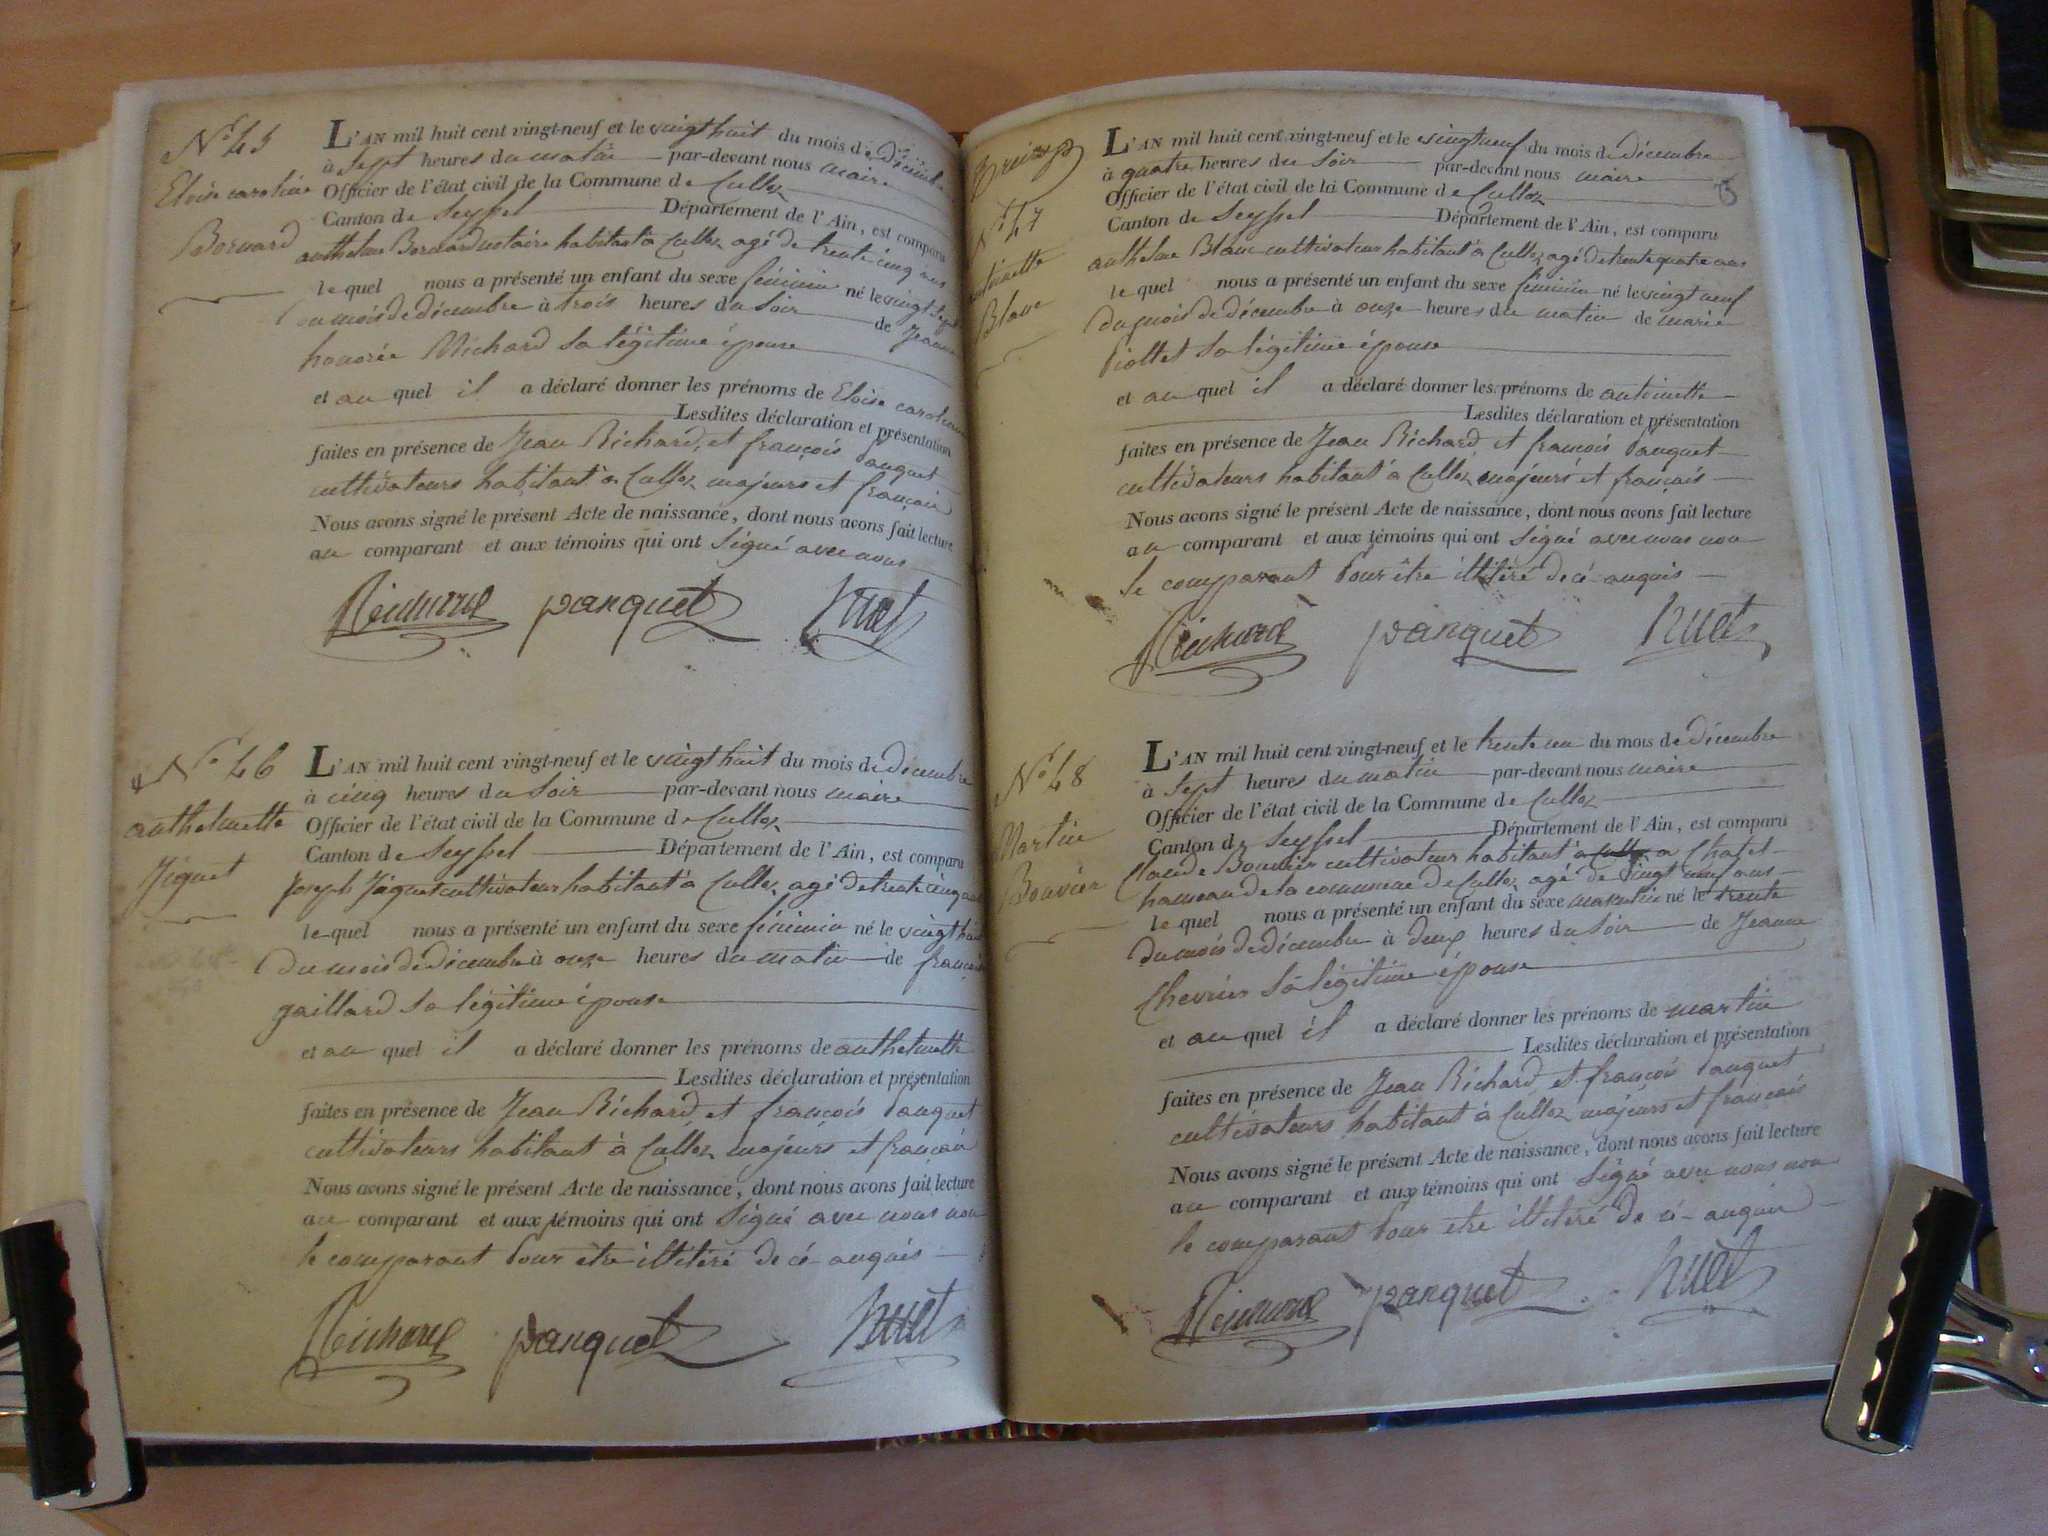 N.º 45
Eloise caroline
Bornard
L'AN mil huit cent vingt-neuf et le vingt huit du mois de décembre
à sept heures du matin par-devant nous maire
Officier de l'état civil de la Commune de Culloz
Canton de Seyssel Département de l'Ain, est comparu
anthelme Bornard notaire habitant à Culloz agé de trente cinq ans
lequel nous a présenté un enfant du sexe féminin né le vingt sept
du mois de décembre à trois heures du soir de Jeanne
honorée Michard sa légitime épouse
et au quel il a déclaré donner les prénoms de Eloise caroline
Lesdites déclaration et présentation
faites en présence de Jean Richard, et françois Panquet
cultivateurs habitant à Culloz majeurs et français
Nous avons signé le présent Acte de naissance, dont nous avons fait lecture
au comparant et aux témoins qui ont signé avec nous
Richard panquet huet
N.º 46
anthelmette
Jiguet
L'AN mil huit cent vingt-neuf et le vingt huit du mois de décembre
à cinq heures du soir par-devant nous maire
Officier de l'état civil de la Commune de Culloz
Canton de Seyssel Département de l'Ain, est comparu
Joseph Jiguet cultivateur habitant à Culloz agé de trente cinq ans
lequel nous a présenté un enfant du sexe féminin né le vingt huit
du mois de décembre à onze heures du matin de françoise
gaillard sa légitime épouse
et au quel il a déclaré donner les prénoms de anthelmette
Lesdites déclaration et présentation
faites en présence de Jean Richard, et françois Panquet
cultivateurs habitant à Culloz majeurs et français
Nous avons signé le présent Acte de naissance, dont nous avons fait lecture
au comparant et aux témoins qui ont signé avec nous non
le comparant pour être illitéré de cé anquis
Richard panquet huet
N.º 47
antoinette
Blanc
L'AN mil huit cent vingt-neuf et le vingt neuf du mois de décembre
à quatre heures du soir par-devant nous maire
Officier de l'état civil de la Commune de Culloz
Canton de Seyssel Département de l'Ain, est comparu
anthelme Blanc cultivateur habitant à Culloz agé de trente quatre ans
lequel nous a présenté un enfant du sexe féminin né le vingt neuf
du mois de décembre à onze heures du matin de marie
Piollet sa légitime épouse
et au quel il a déclaré donner les prénoms de antoinette
Lesdites déclaration et présentation
faites en présence de Jean Richard, et françois Panquet
cultivateurs habitant à Culloz majeurs et français
Nous avons signé le présent Acte de naissance, dont nous avons fait lecture
au comparant et aux témoins qui ont signé avec nous non
le comparant pour être illitéré de cé anquis
Richard panquet huet
N.º 48
Martin
Bouvier
L'AN mil huit cent vingt-neuf et le trente un du mois de décembre
à sept heures du matin par-devant nous maire
Officier de l'état civil de la Commune de Culloz
Canton de Seyssel Département de l'Ain, est comparu
Claude Bouvier cultivateur habitant à Culloz a Chatel
hameau de la commune de Culloz agé de vingt neuf ans
lequel nous a présenté un enfant du sexe masculin né le trente
du mois de décembre à deux heures du soir de Jeanne
Chevrier sa légitime épouse
et au quel il a déclaré donner les prénoms de martin
Lesdites déclaration et présentation
faites en présence de Jean Richard, et françois Panquet
cultivateurs habitant à Culloz majeurs et français
Nous avons signé le présent Acte de naissance, dont nous avons fait lecture
au comparant et aux témoins qui ont signé avec nous non
le comparant pour etre illitéré de cé anquis
Richard panquet huet